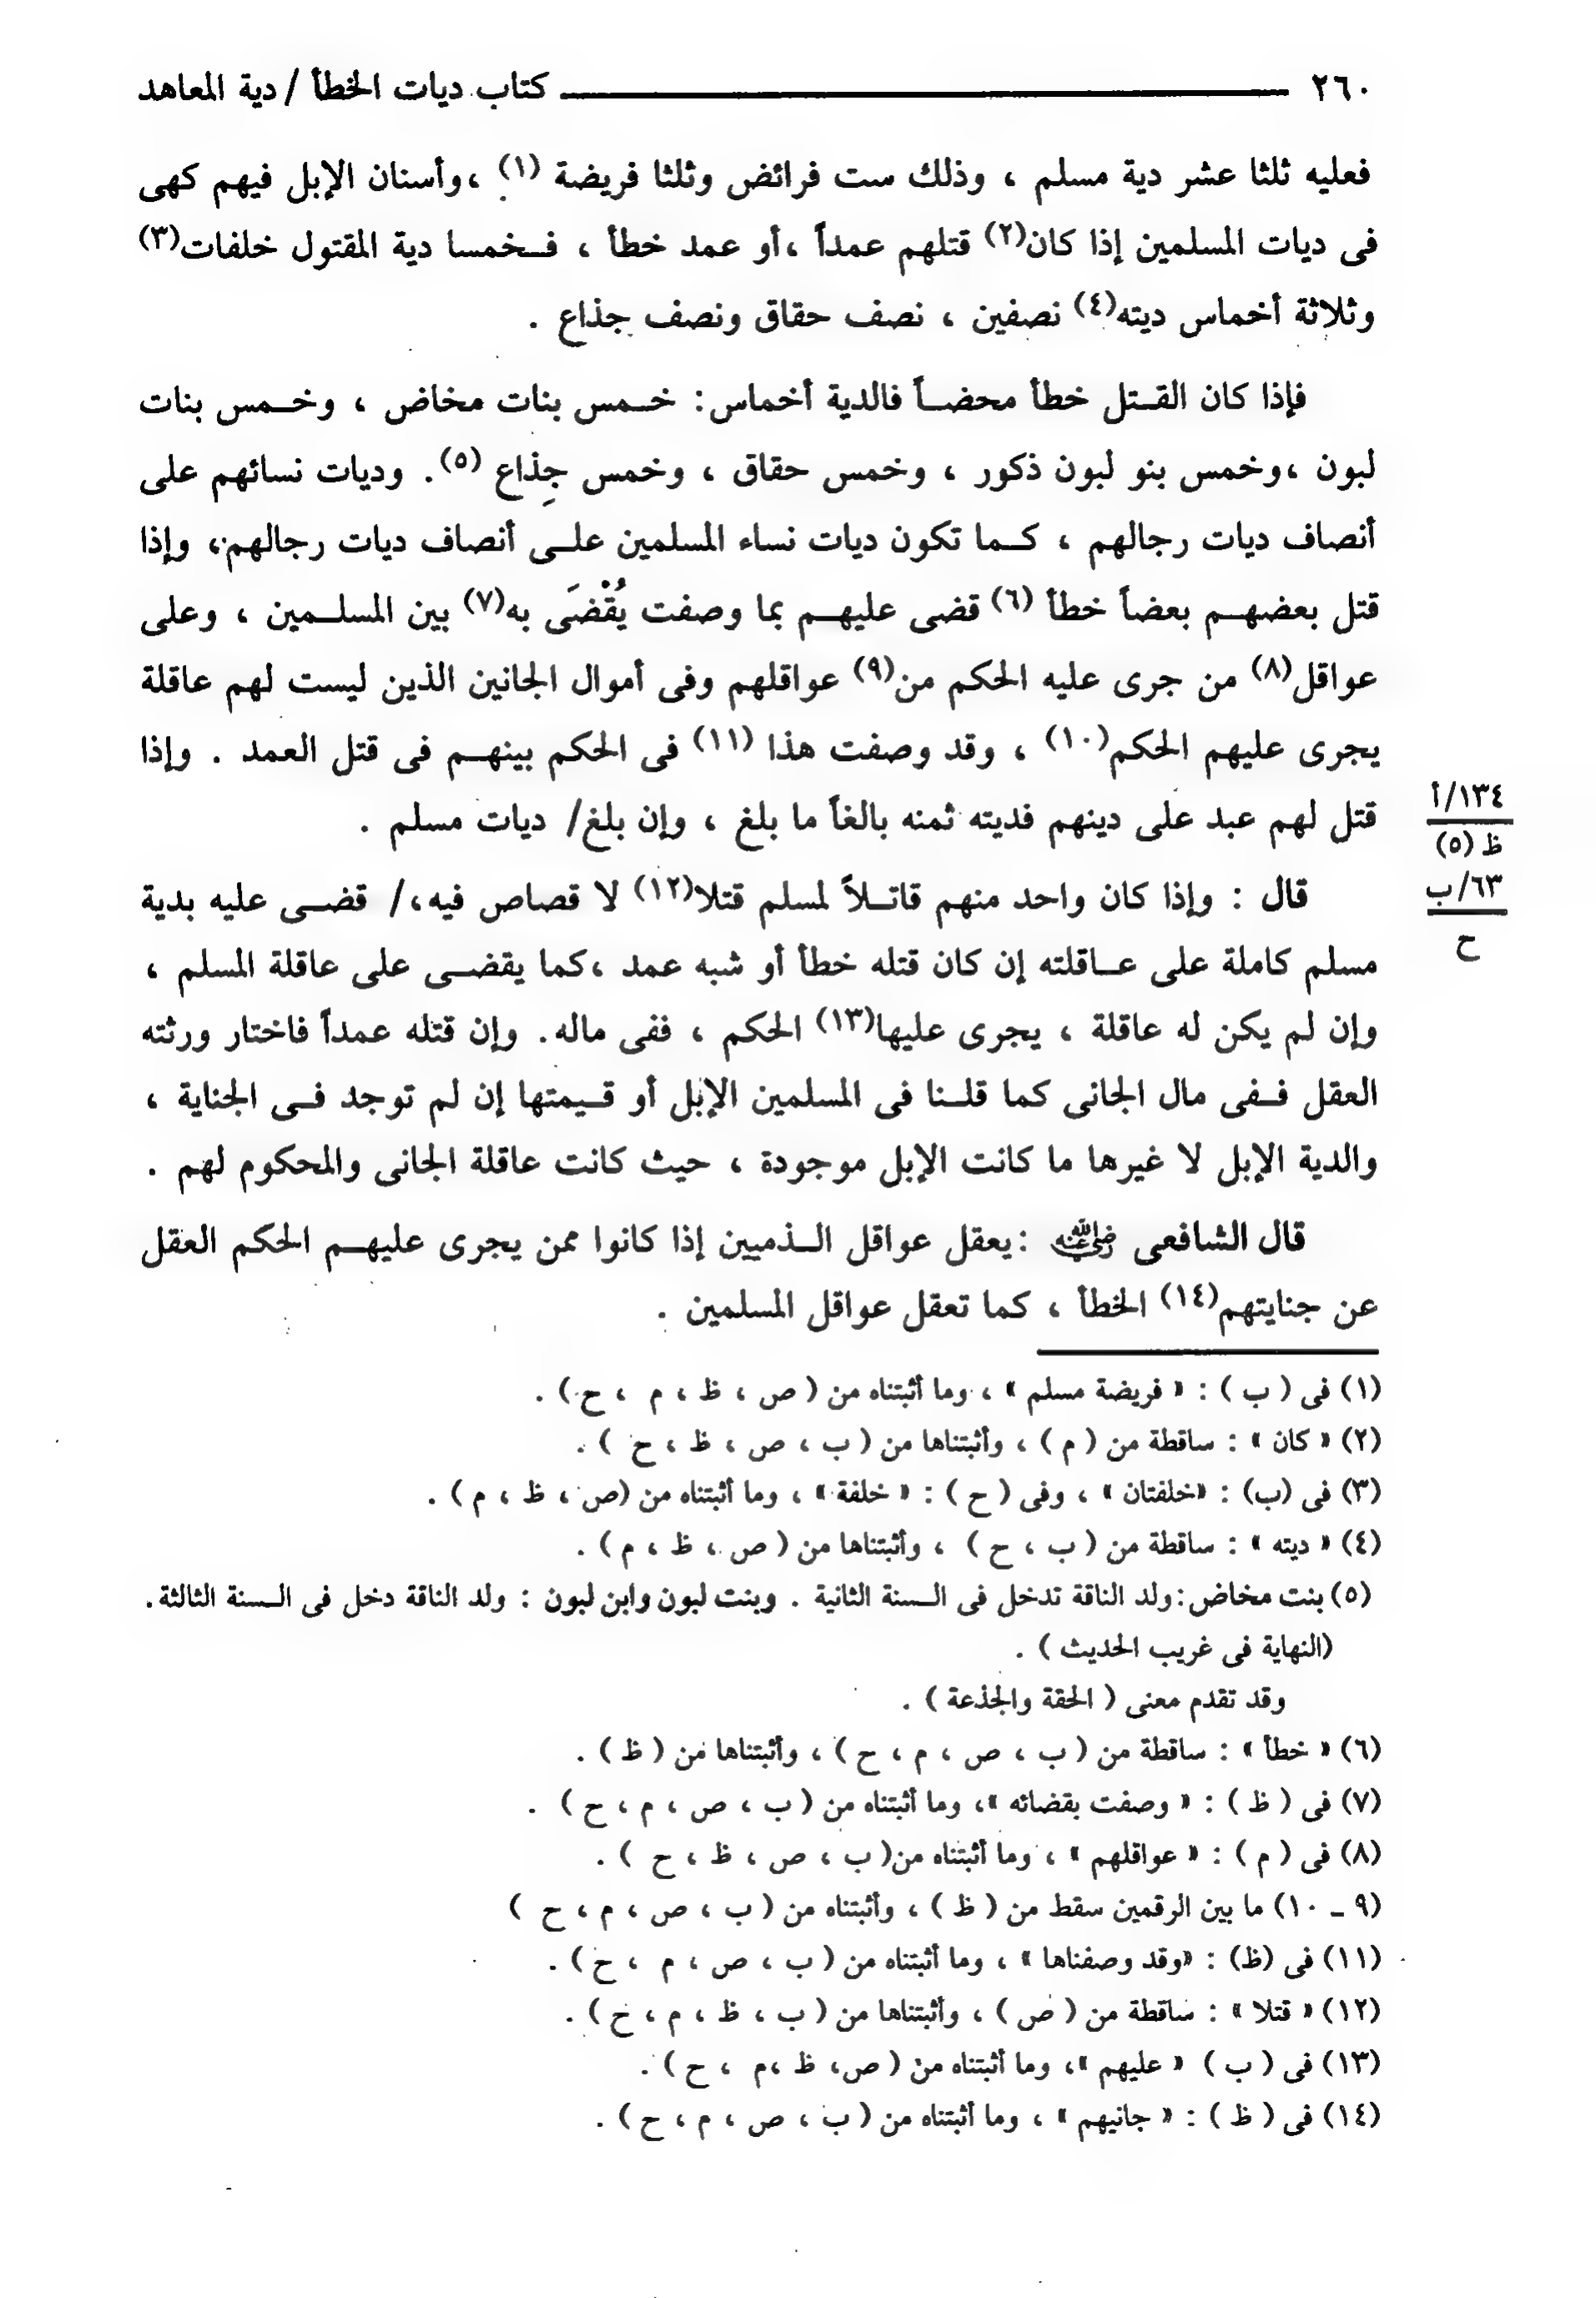 ٢٦٠ كتاب ديات الخطأ / دية المعاهد
فعليه ثلثا عشر دية مسلم ، وذلك ست فرائض وثلثا فريضة (١) ،وأسنان الإبل فيهم كهى
فى ديات المسلمين إذا كان(٢) قتلهم عمداً ،أو عمد خطأ ، فـخمسا دية المقتول خلفات(٣)
وثلاثة أخماس ديته(٤) نصفين ، نصف حقاق ونصف جذاع .
فإذا كان القـتل خطأ محضـاً فالدية أخماس: خـمس بنات مخاض ، وخـمس بنات
لبون ،وخمس بنو لبون ذكور ، وخمس حقاق ، وخمس جِذاع (٥). وديات نسائهم على
أنصاف ديات رجالهم ، كـما تكون ديات نساء المسلمين علـى أنصاف ديات رجالهم، وإذا
قتل بعضهـم بعضاً خطأ (٦) قضى عليهـم بما وصفت يُقْضَى به(٧) بين المسلـمين ، وعلى
عواقل(٨) من جرى عليه الحكم من(٩) عواقلهم وفى أموال الجانين الذين ليست لهم عاقلة
يجرى عليهم الحكم(١٠) ، وقد وصفت هذا (١١) فى الحكم بينهـم فى قتل العمد . وإذا
قتل لهم عبد على دينهم فديته ثمنه بالغاً ما بلغ ، وإن بلغ/ ديات مسلم .
١٣٤/أ
ظ (٥)
٦٣/ب
ح
قال : وإذا كان واحد منهم قاتـلاً لمسلم قتلا(١٢) لا قصاص فيه،/ قضـى عليه بدية
مسلم كاملة على عـاقلته إن كان قتله خطأ أو شبه عمد ،كما يقضـى على عاقلة المسلم ،
وإن لم يكن له عاقلة ، يجرى عليها(١٣) الحكم ، ففى ماله. وإن قتله عمداً فاختار ورثته
العقل فـفى مال الجانى كما قلـنا فى المسلمين الإبل أو قـيمتها إن لم توجد فـى الجناية ،
والدية الإبل لا غيرها ما كانت الإبل موجودة ، حيث كانت عاقلة الجانى والمحكوم لهم .
قال الشافعى رضي الله عنه :يعقل عواقل الـذميين إذا كانوا ممن يجرى عليهـم الحكم العقل
عن جنايتهم(١٤) الخطأ ، كما تعقل عواقل المسلمين .
(١) فى ( ب ) : « فريضة مسلم » ، وما أثبتناه من ( ص ، ظ ، م ، ح ) .
(٢) « كان » : ساقطة من ( م ) ، وأثبتناها من ( ب ، ص ، ظ ، ح ) .
(٣) فى (ب) : «خلفتان » ، وفى ( ح ) : « خلفة » ، وما أثبتناه من (ص ، ظ ، م ) .
(٤) « ديته » : ساقطة من ( ب ، ح ) ، وأثبتناها من ( ص ، ظ ، م ) .
(٥) بنت مخاض :ولد الناقة تدخل فى الـسنة الثانية . وبنت لبون وابن لبون : ولد الناقة دخل فى الـسنة الثالثة .
(النهاية فى غريب الحديث ) .
وقد تقدم معنى ( الحقة والجذعة ) .
(٦) « خطأ » : ساقطة من ( ب ، ص ، م ، ح ) ، وأثبتناها من ( ظ ) .
(٧) فى ( ظ ) : « وصفت بقضائه »، وما أثبتناه من ( ب ، ص ، م ، ح ) .
(٨) فى ( م ) : « عواقلهم » ، وما أثبتناه من( ب ، ص ، ظ ، ح ) .
(٩ ـ ١٠) ما بين الرقمين سقط من ( ظ ) ، وأثبتناه من ( ب ، ص ، م ، ح )
(١١) فى (ظ) : «وقد وصفناها » ، وما أثبتناه من ( ب ، ص ، م ، ح ) .
(١٢) « قتلا » : ساقطة من ( ص ) ، وأثبتناها من ( ب ، ظ ، م ، ح ) .
(١٣) فى ( ب ) « عليهم »، وما أثبتناه من ( ص، ظ ،م ، ح ) .
(١٤) فى ( ظ ) : « جانيهم » ، وما أثبتناه من ( ب ، ص ، م ، ح ) .